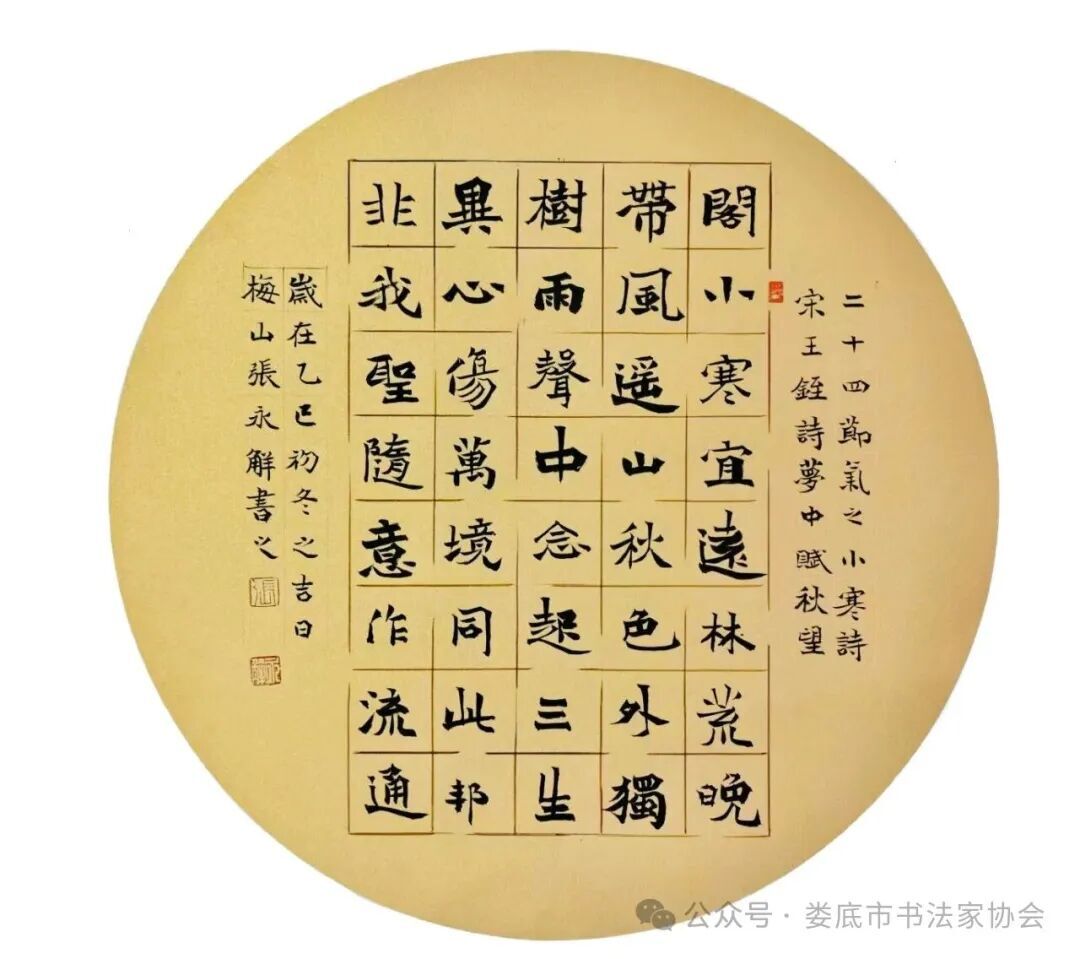 二十四節氣之小寒詩
宋王銍詩夢中賦秋望
閣小寒宜遠林荒晚
帶風遥山秋色外獨
樹雨聲中念起三生
異心傷萬境同此邦
非我聖隨意作流通
歲在乙巳初冬之吉日
梅山張永解書之
公众号·娄底市书法家协会